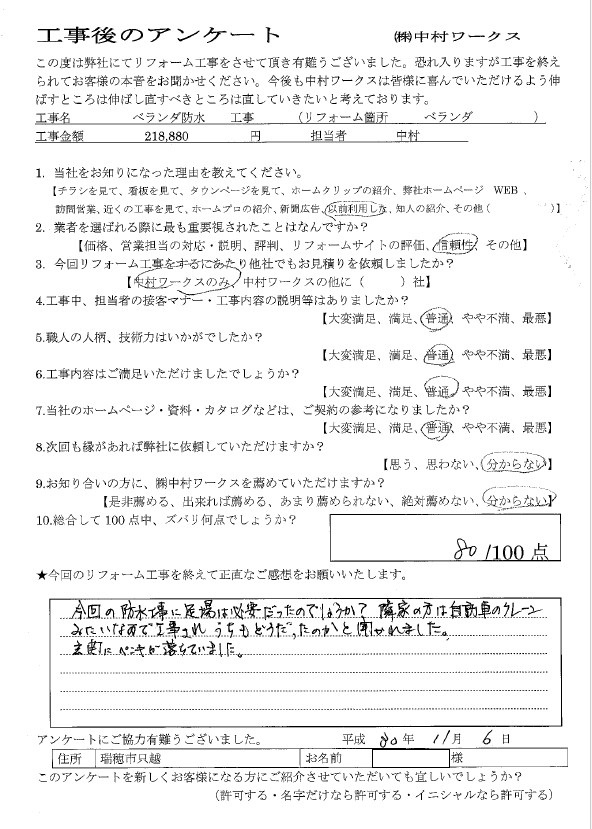 工事後のアンケート ㈱中村ワークス
この度は弊社にてリフォーム工事をさせて頂き有難うございました。恐れ入りますが工事を終え
られてお客様の本音をお聞かせください。今後も中村ワークスは皆様に喜んでいただけるよう伸
ばすところは伸ばし直すべきところは直していきたいと考えております。
工事名 ベランダ防水 工事 (リフォーム箇所 ベランダ )
工事金額 218,880 円 担当者 中村
1. 当社をお知りになった理由を教えてください。
【チラシを見て、看板を見て、タウンページを見て、ホームクリップの紹介、弊社ホームページ WEB 、
訪問営業、近くの工事を見て、ホームプロの紹介、新聞広告、以前利用した、知人の紹介、その他( )】
2. 業者を選ばれる際に最も重要視されたことはなんですか?
【価格、営業担当の対応・説明、評判、リフォームサイトの評価、信頼性、その他】
3. 今回リフォーム工事をするにあたり他社でもお見積りを依頼しましたか?
【中村ワークスのみ、中村ワークスの他に( )社】
4.工事中、担当者の接客マナー・工事内容の説明等はありましたか?
【大変満足、満足、普通、やや不満、最悪】
5.職人の人柄、技術力はいかがでしたか?
【大変満足、満足、普通、やや不満、最悪】
6.工事内容はご満足いただけましたでしょうか?
【大変満足、満足、普通、やや不満、最悪】
7.当社のホームページ・資料・カタログなどは、ご契約の参考になりましたか?
【大変満足、満足、普通、やや不満、最悪】
8.次回も縁があれば弊社に依頼していただけますか?
【思う、思わない、分からない】
9.お知り合いの方に、㈱中村ワークスを薦めていただけますか?
【是非薦める、出来れば薦める、あまり薦められない、絶対薦めない、分からない】
10.総合して100点中、ズバリ何点でしょうか?
80 /100 点
★今回のリフォーム工事を終えて正直なご感想をお願いいたします。
今回の防水工事に足場は必要だったのでしょうか? 隣家の方は自動車のクレーン
みたいなので工事され うちもどうだったのかと聞かれました。
玄関にペンキが落ちていました。
アンケートにご協力有難うございました。 平成 30 年 11 月 6 日
住所 瑞穂市只越 お名前 様
このアンケートを新しくお客様になる方にご紹介させていただいても宜しいでしょうか?
(許可する・名字だけなら許可する・イニシャルなら許可する)